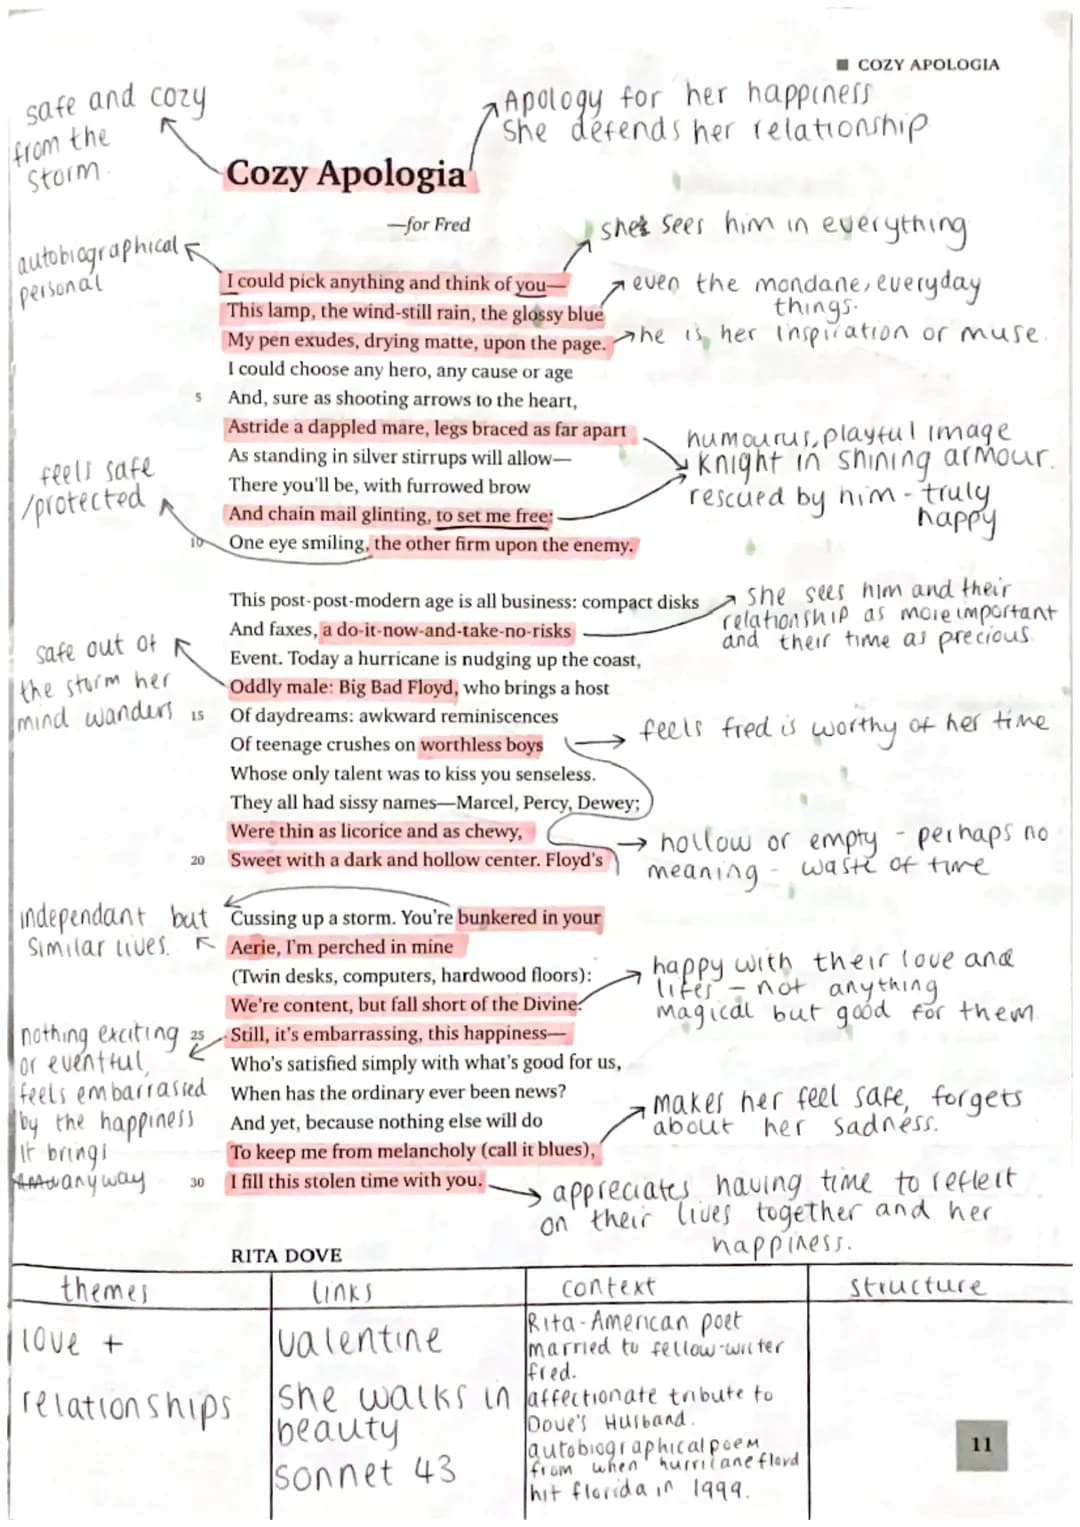 ■ COZY APOLOGIA
safe and cozy
from the
storm.
Apology for her happiness
She defends her relationship
Cozy Apologia
—for Fred
she sees him in everything
autobiographical
personal
I could pick anything and think of you—
even the mondane, everyday
things.
This lamp, the wind-still rain, the glossy blue
My pen exudes, drying matte, upon the page.
he is her inspiration or muse.
I could choose any hero, any cause or age
5 And, sure as shooting arrows to the heart,
Astride a dappled mare, legs braced as far apart
humourus, playful image
knight in shining armour.
rescued by him - truly
happy
As standing in silver stirrups will allow—
There you'll be, with furrowed brow
feels safe
/protected
And chain mail glinting, to set me free:
10 One eye smiling, the other firm upon the enemy.
This post-post-modern age is all business: compact disks
she sees him and their
relationship as more important
and their time as precious.
And faxes, a do-it-now-and-take-no-risks
Event. Today a hurricane is nudging up the coast,
safe out of
the storm her
mind wanders
Oddly male: Big Bad Floyd, who brings a host
15 Of daydreams: awkward reminiscences
feels fred is worthy of her time
Of teenage crushes on worthless boys
Whose only talent was to kiss you senseless.
They all had sissy names—Marcel, Percy, Dewey;
Were thin as licorice and as chewy,
hollow or empty - perhaps no
meaning - waste of time
20 Sweet with a dark and hollow center. Floyd's
independant but
similar lives.
Cussing up a storm. You're bunkered in your
Aerie, I'm perched in mine
(Twin desks, computers, hardwood floors):
happy with their love and
lifes - not anything
magical but good for them.
We're content, but fall short of the Divine.
25 Still, it's embarrassing, this happiness—
nothing exciting
or eventful,
feels embarrassed
by the happiness
it brings
anyway
Who's satisfied simply with what's good for us,
When has the ordinary ever been news?
And yet, because nothing else will do
makes her feel safe, forgets
about her sadness.
To keep me from melancholy (call it blues),
30 I fill this stolen time with you.
appreciates having time to reflect
on their lives together and her
happiness.
RITA DOVE
themes
links
context
structure
love +
relationships
valentine
she walks in
beauty
sonnet 43
Rita-American poet
married to fellow-writer
fred.
affectionate tribute to
Dove's Husband.
autobiographical poem
from when hurricane floyd
hit florida in 1999.
11